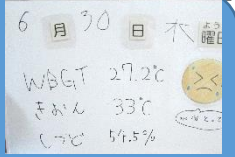 6月30日 水曜日
WBGT 27.2℃
きおん 33℃
しつど 54.5%